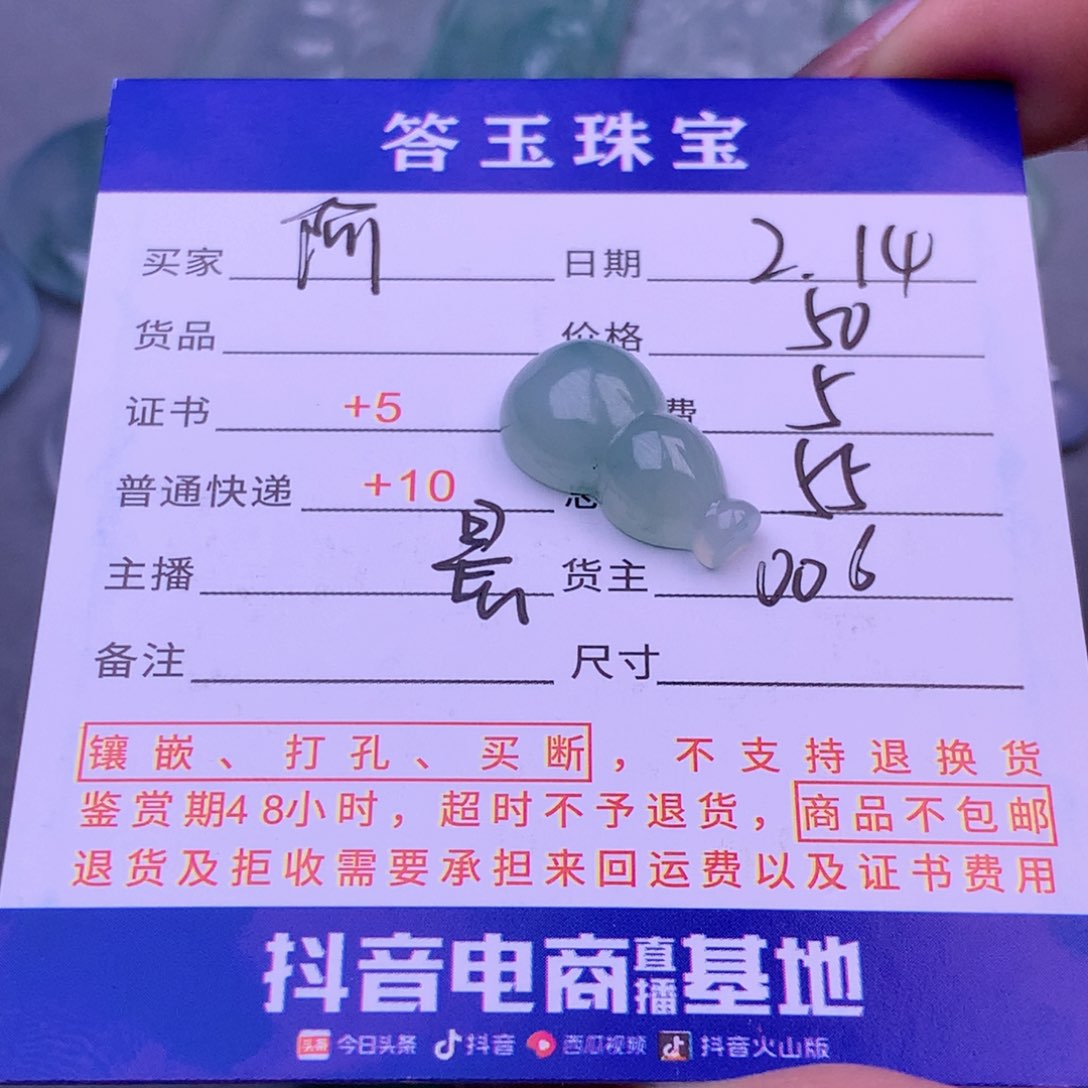 答玉珠宝
买家 阿 日期 2.14
货品 价格 50
证书 +5 费 5
普通快递 +10 55
主播 晨 货主 006
备注 尺寸
镶嵌、打孔、买断，不支持退换货
鉴赏期48小时，超时不予退货，商品不包邮
退货及拒收需要承担来回运费以及证书费用
抖音电商直播基地
头条 今日头条 抖音 西瓜视频 抖音火山版